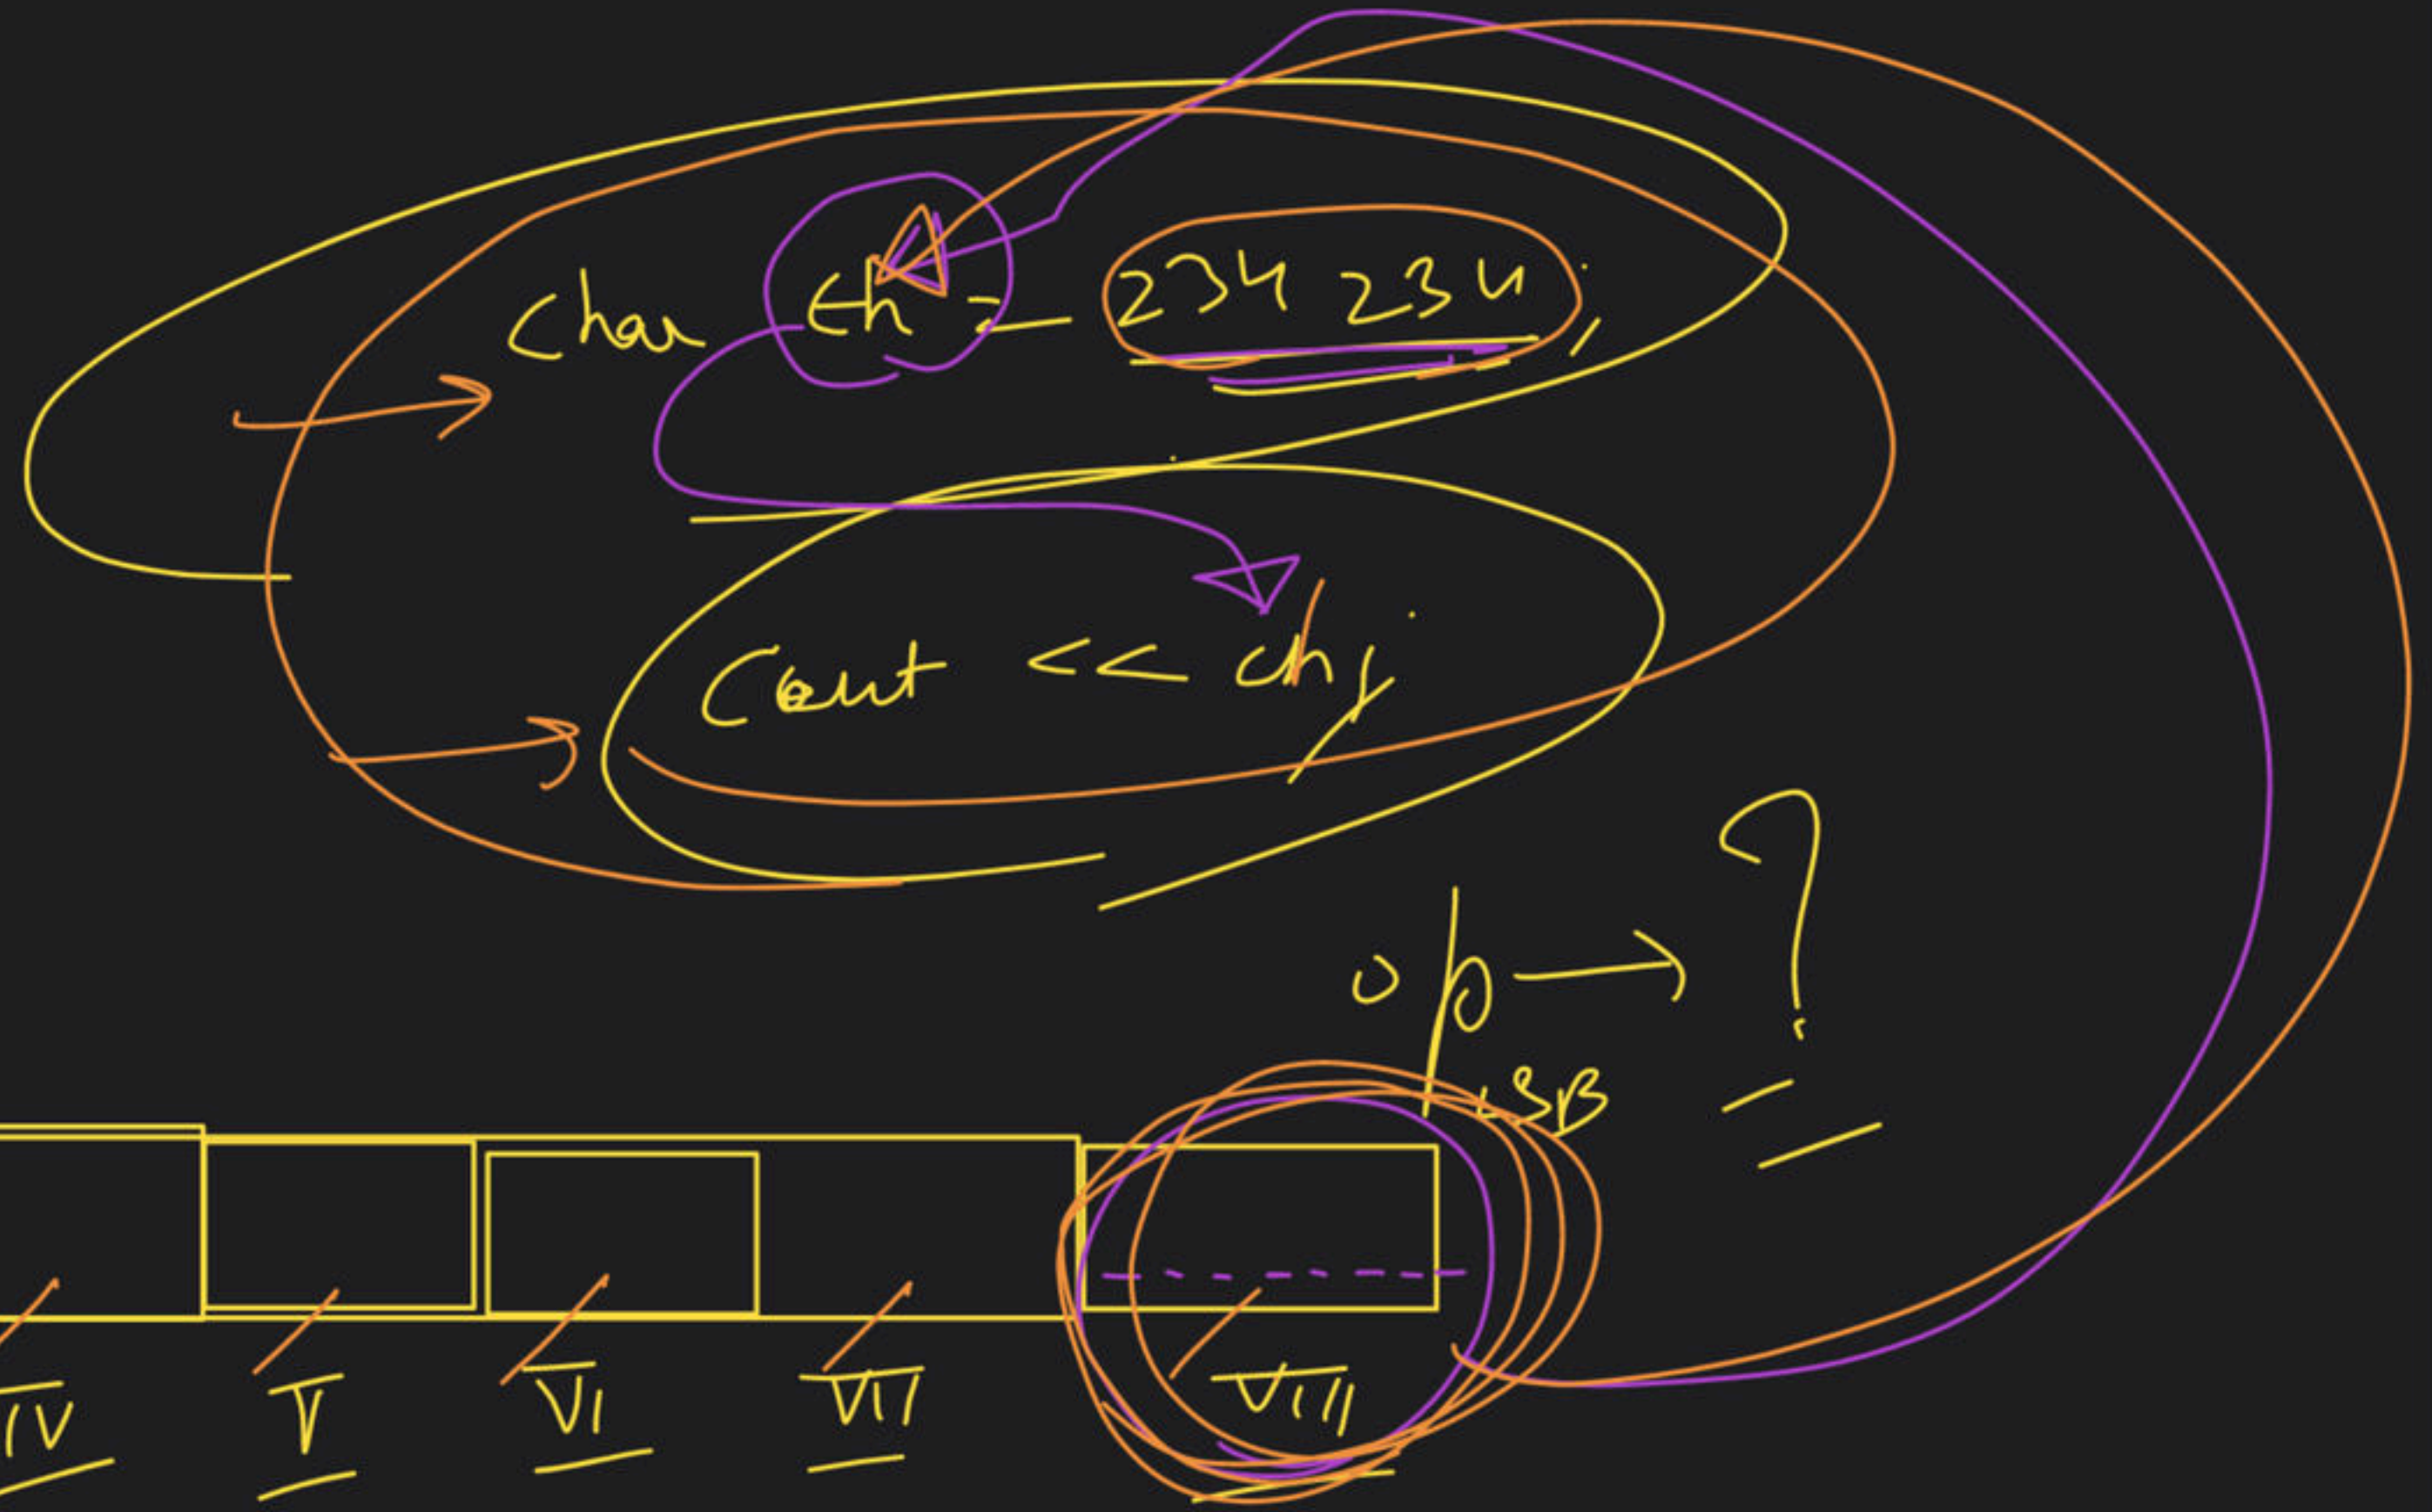 char ch = 234 234;
cout << ch;
o/p → ?
LSB
IV V VI VII VIII